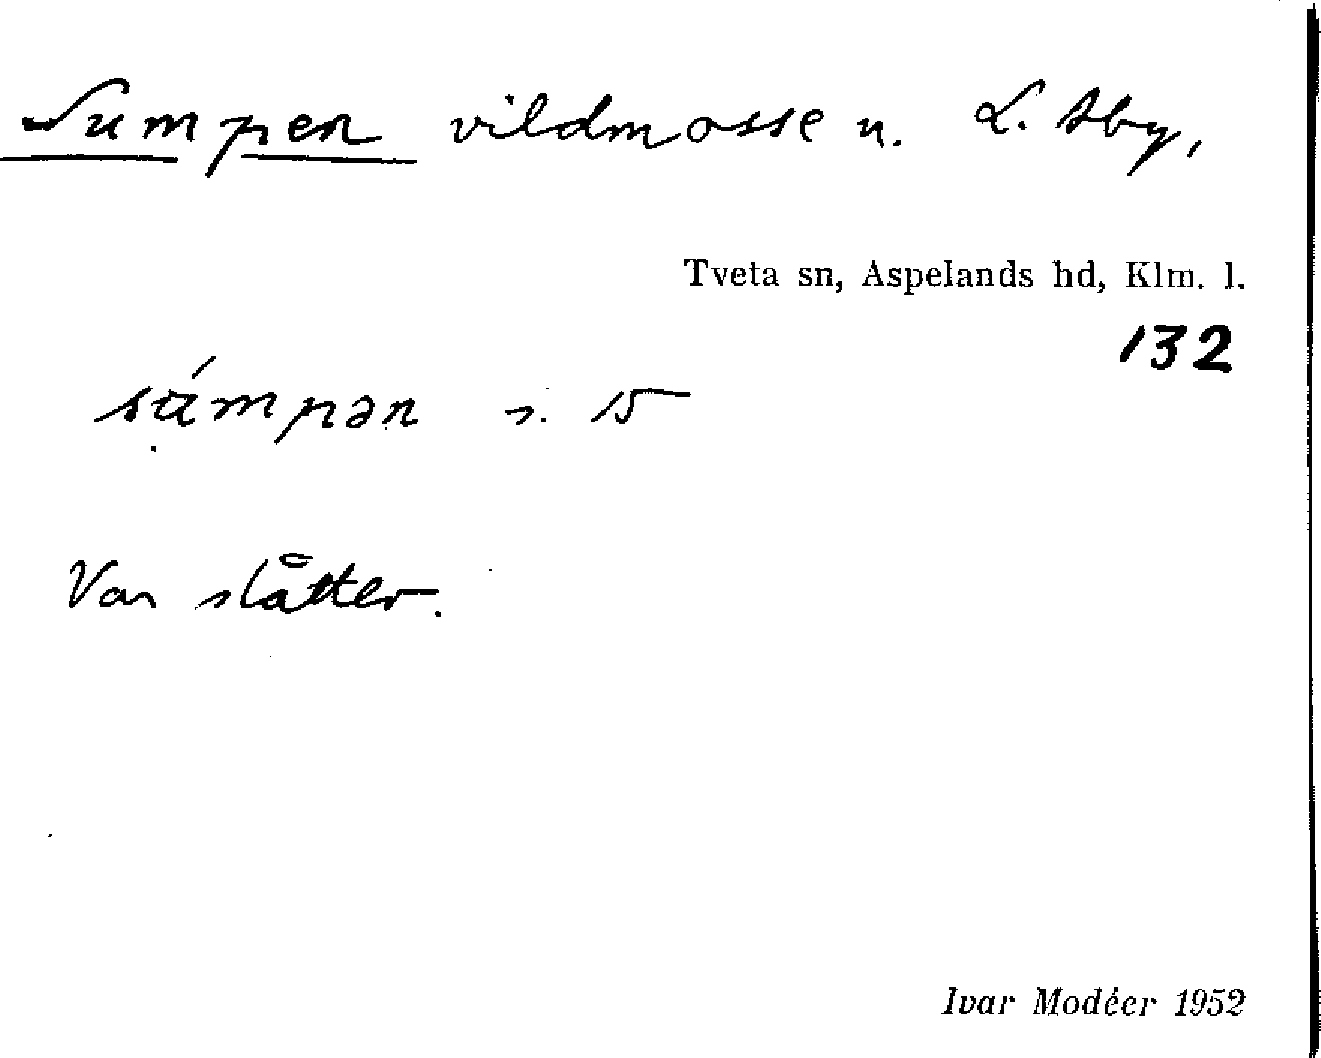 Sumpen vildmosse u. L. Aby,
Tveta sn, Aspelands hd, Klm. l.
132
sámpən s. 15
Var slåtter.
Ivar Modéer 1952